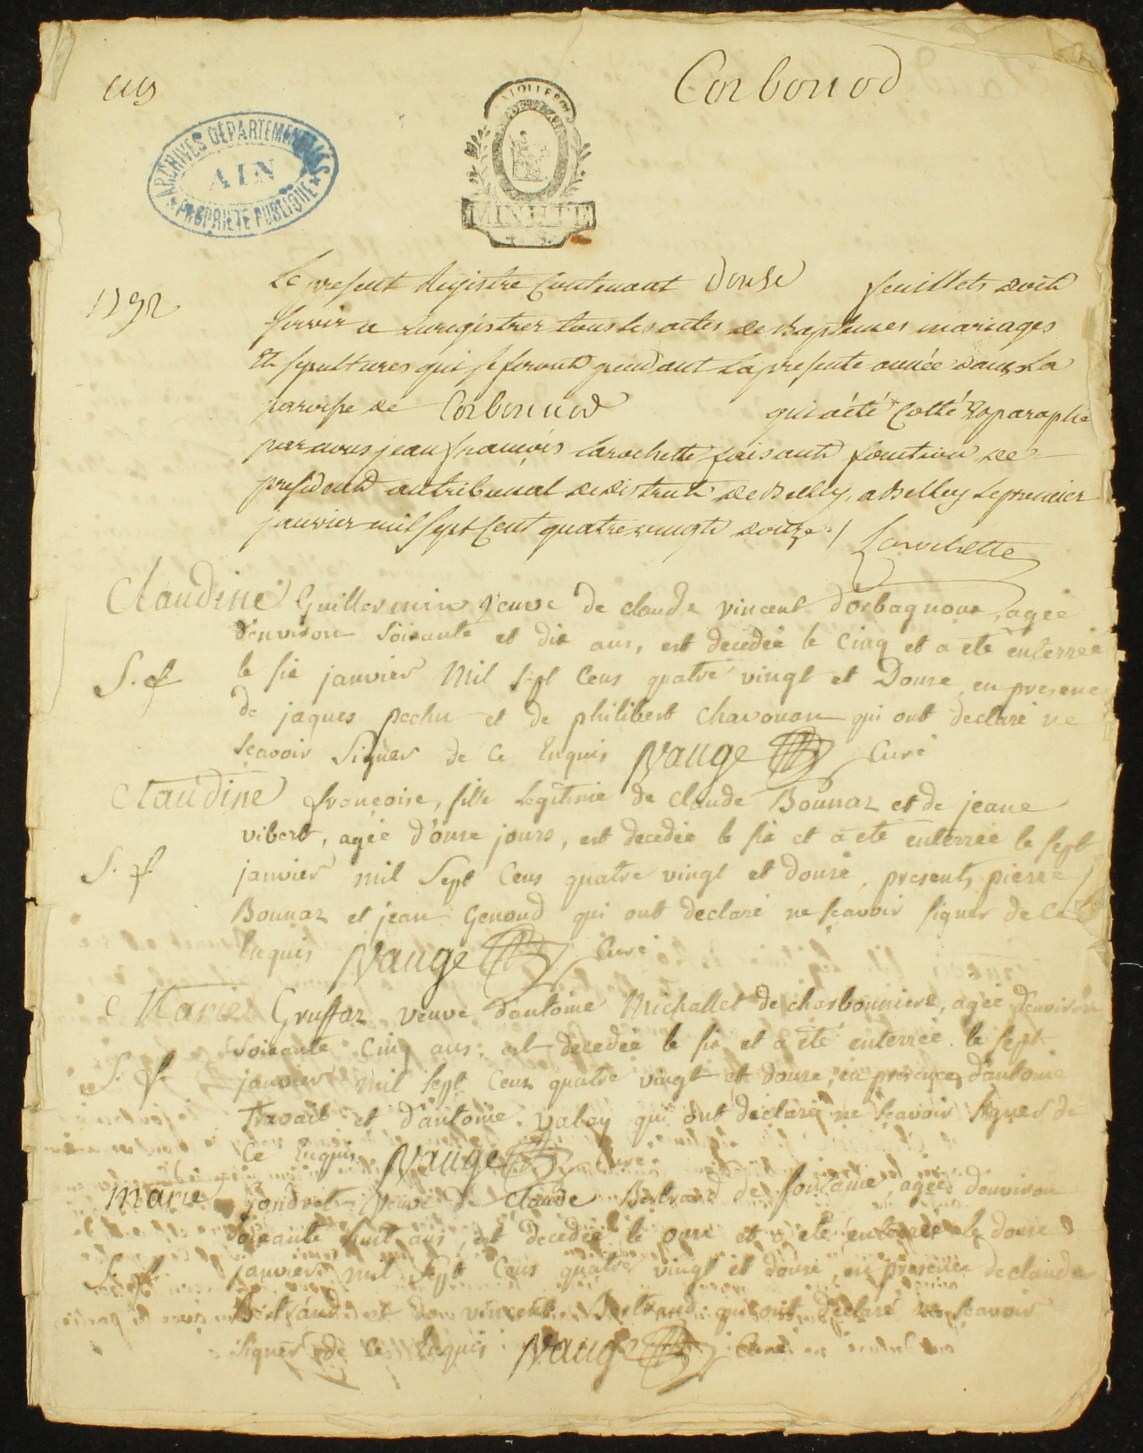 Corbonod
ARCHIVES DÉPARTEMENTALES
AIN
PROPRIÉTÉ PUBLIQUE
1792
Le present Registre Contenant Douse feuillets doit
servir a enregistrer tous les actes de Baptemes mariages
Et sepultures qui se feront pendant la presente année dans la
paroisse de Corbonnod qui a été Cotté & paraphé
par nous jean françois Larochette faisant fonction de
president au tribunal de district de Belley, a Belley le premier
janvier mil sept Cent quatre vingts douze ./.
Larochette
Claudine Guillermin veuve de claude vincent d'orbagnoux, agée
d'environ soixante et dix ans, est decedée le Cinq et a été enterrée
S. f. le sis janvier mil sept Cens quatre vingt et Douse, en presence
de jaques pochu et de philibert chavonon qui ont declaré ne
sçavoir signer de ce Enquis Vauge Curé
Claudine françoise, fille Legitime de Claude Bonnaz et de jeane
vibert, agée d'onse jours, est decedée le sis et a été enterrée le sept
S. f. janvier mil sept Cens quatre vingt et douse, presents pierre
Bonnaz et jean Genoud qui ont declaré ne sçavoir signer de Ce
Enquis Vauge Curé
Marie Gruffaz veuve d'antoine Michallet de charbonniere, agée d'environ
soixante cinq ans, est decedée le sis et a été enterrée le sept
S. f. janvier mil sept Cens quatre vingt et douse, en presence d'antoine
Travail et d'antoine vaboy qui ont declaré ne sçavoir signer de
Ce Enquis Vauge Curé
Marie jondret veuve de Claude Bertrand de fontaine, agée d'environ
soixante huit ans est decedée le onse et a été enterrée le douse
S. f. janvier mil sept Cens quatre vingt et douse, en presence de claude
Bertrand et de vincent Bertrand qui ont declaré ne sçavoir
signer de Ce Enquis Vauge Curé